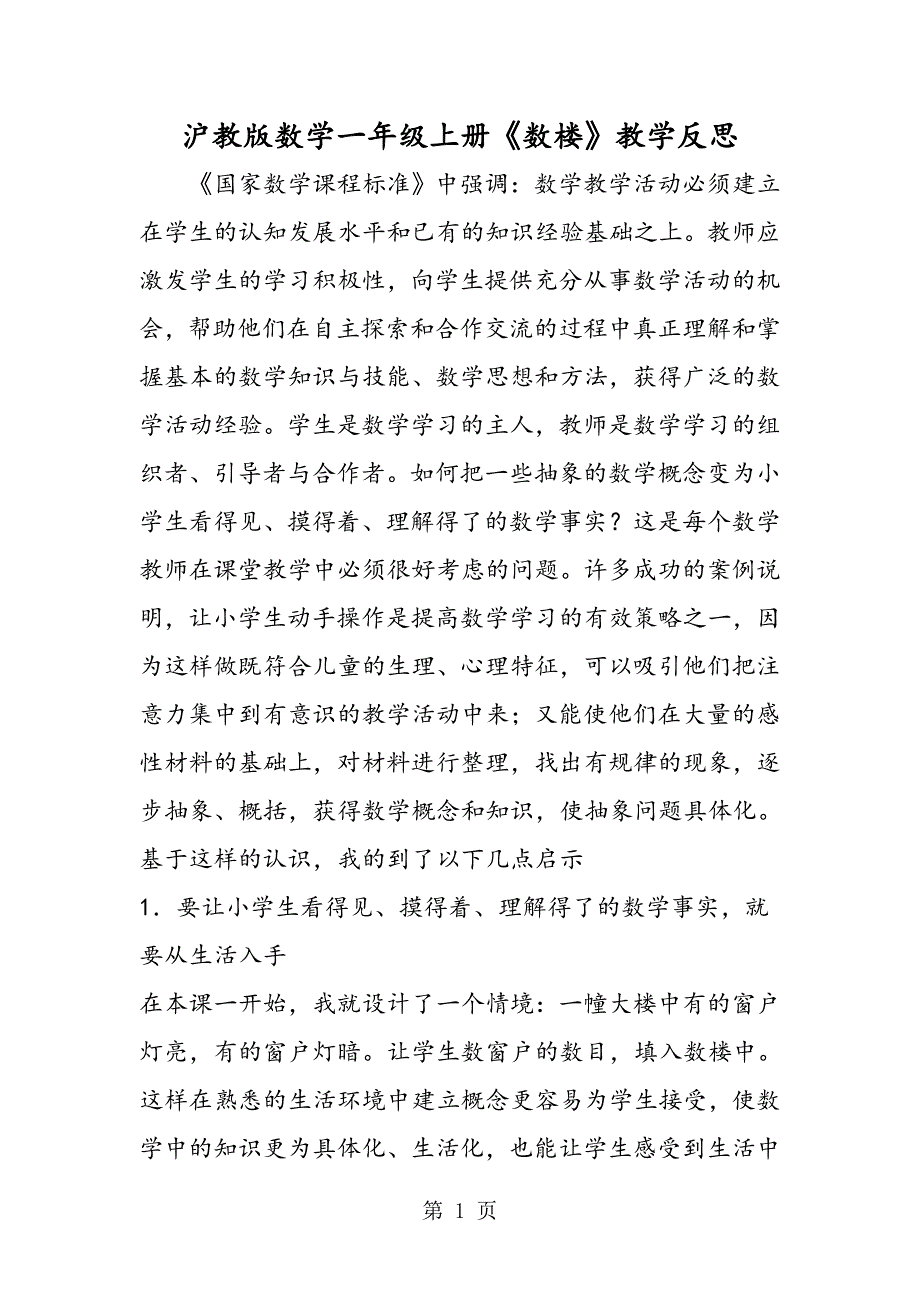 沪教版数学一年级上册《数楼》教学反思
《国家数学课程标准》中强调：数学教学活动必须建立
在学生的认知发展水平和已有的知识经验基础之上。教师应
激发学生的学习积极性，向学生提供充分从事数学活动的机
会，帮助他们在自主探索和合作交流的过程中真正理解和掌
握基本的数学知识与技能、数学思想和方法，获得广泛的数
学活动经验。学生是数学学习的主人，教师是数学学习的组
织者、引导者与合作者。如何把一些抽象的数学概念变为小
学生看得见、摸得着、理解得了的数学事实？这是每个数学
教师在课堂教学中必须很好考虑的问题。许多成功的案例说
明，让小学生动手操作是提高数学学习的有效策略之一，因
为这样做既符合儿童的生理、心理特征，可以吸引他们把注
意力集中到有意识的教学活动中来；又能使他们在大量的感
性材料的基础上，对材料进行整理，找出有规律的现象，逐
步抽象、概括，获得数学概念和知识，使抽象问题具体化。
基于这样的认识，我的到了以下几点启示
1．要让小学生看得见、摸得着、理解得了的数学事实，就
要从生活入手
在本课一开始，我就设计了一个情境：一幢大楼中有的窗户
灯亮，有的窗户灯暗。让学生数窗户的数目，填入数楼中。
这样在熟悉的生活环境中建立概念更容易为学生接受，使数
学中的知识更为具体化、生活化，也能让学生感受到生活中
第 1 页